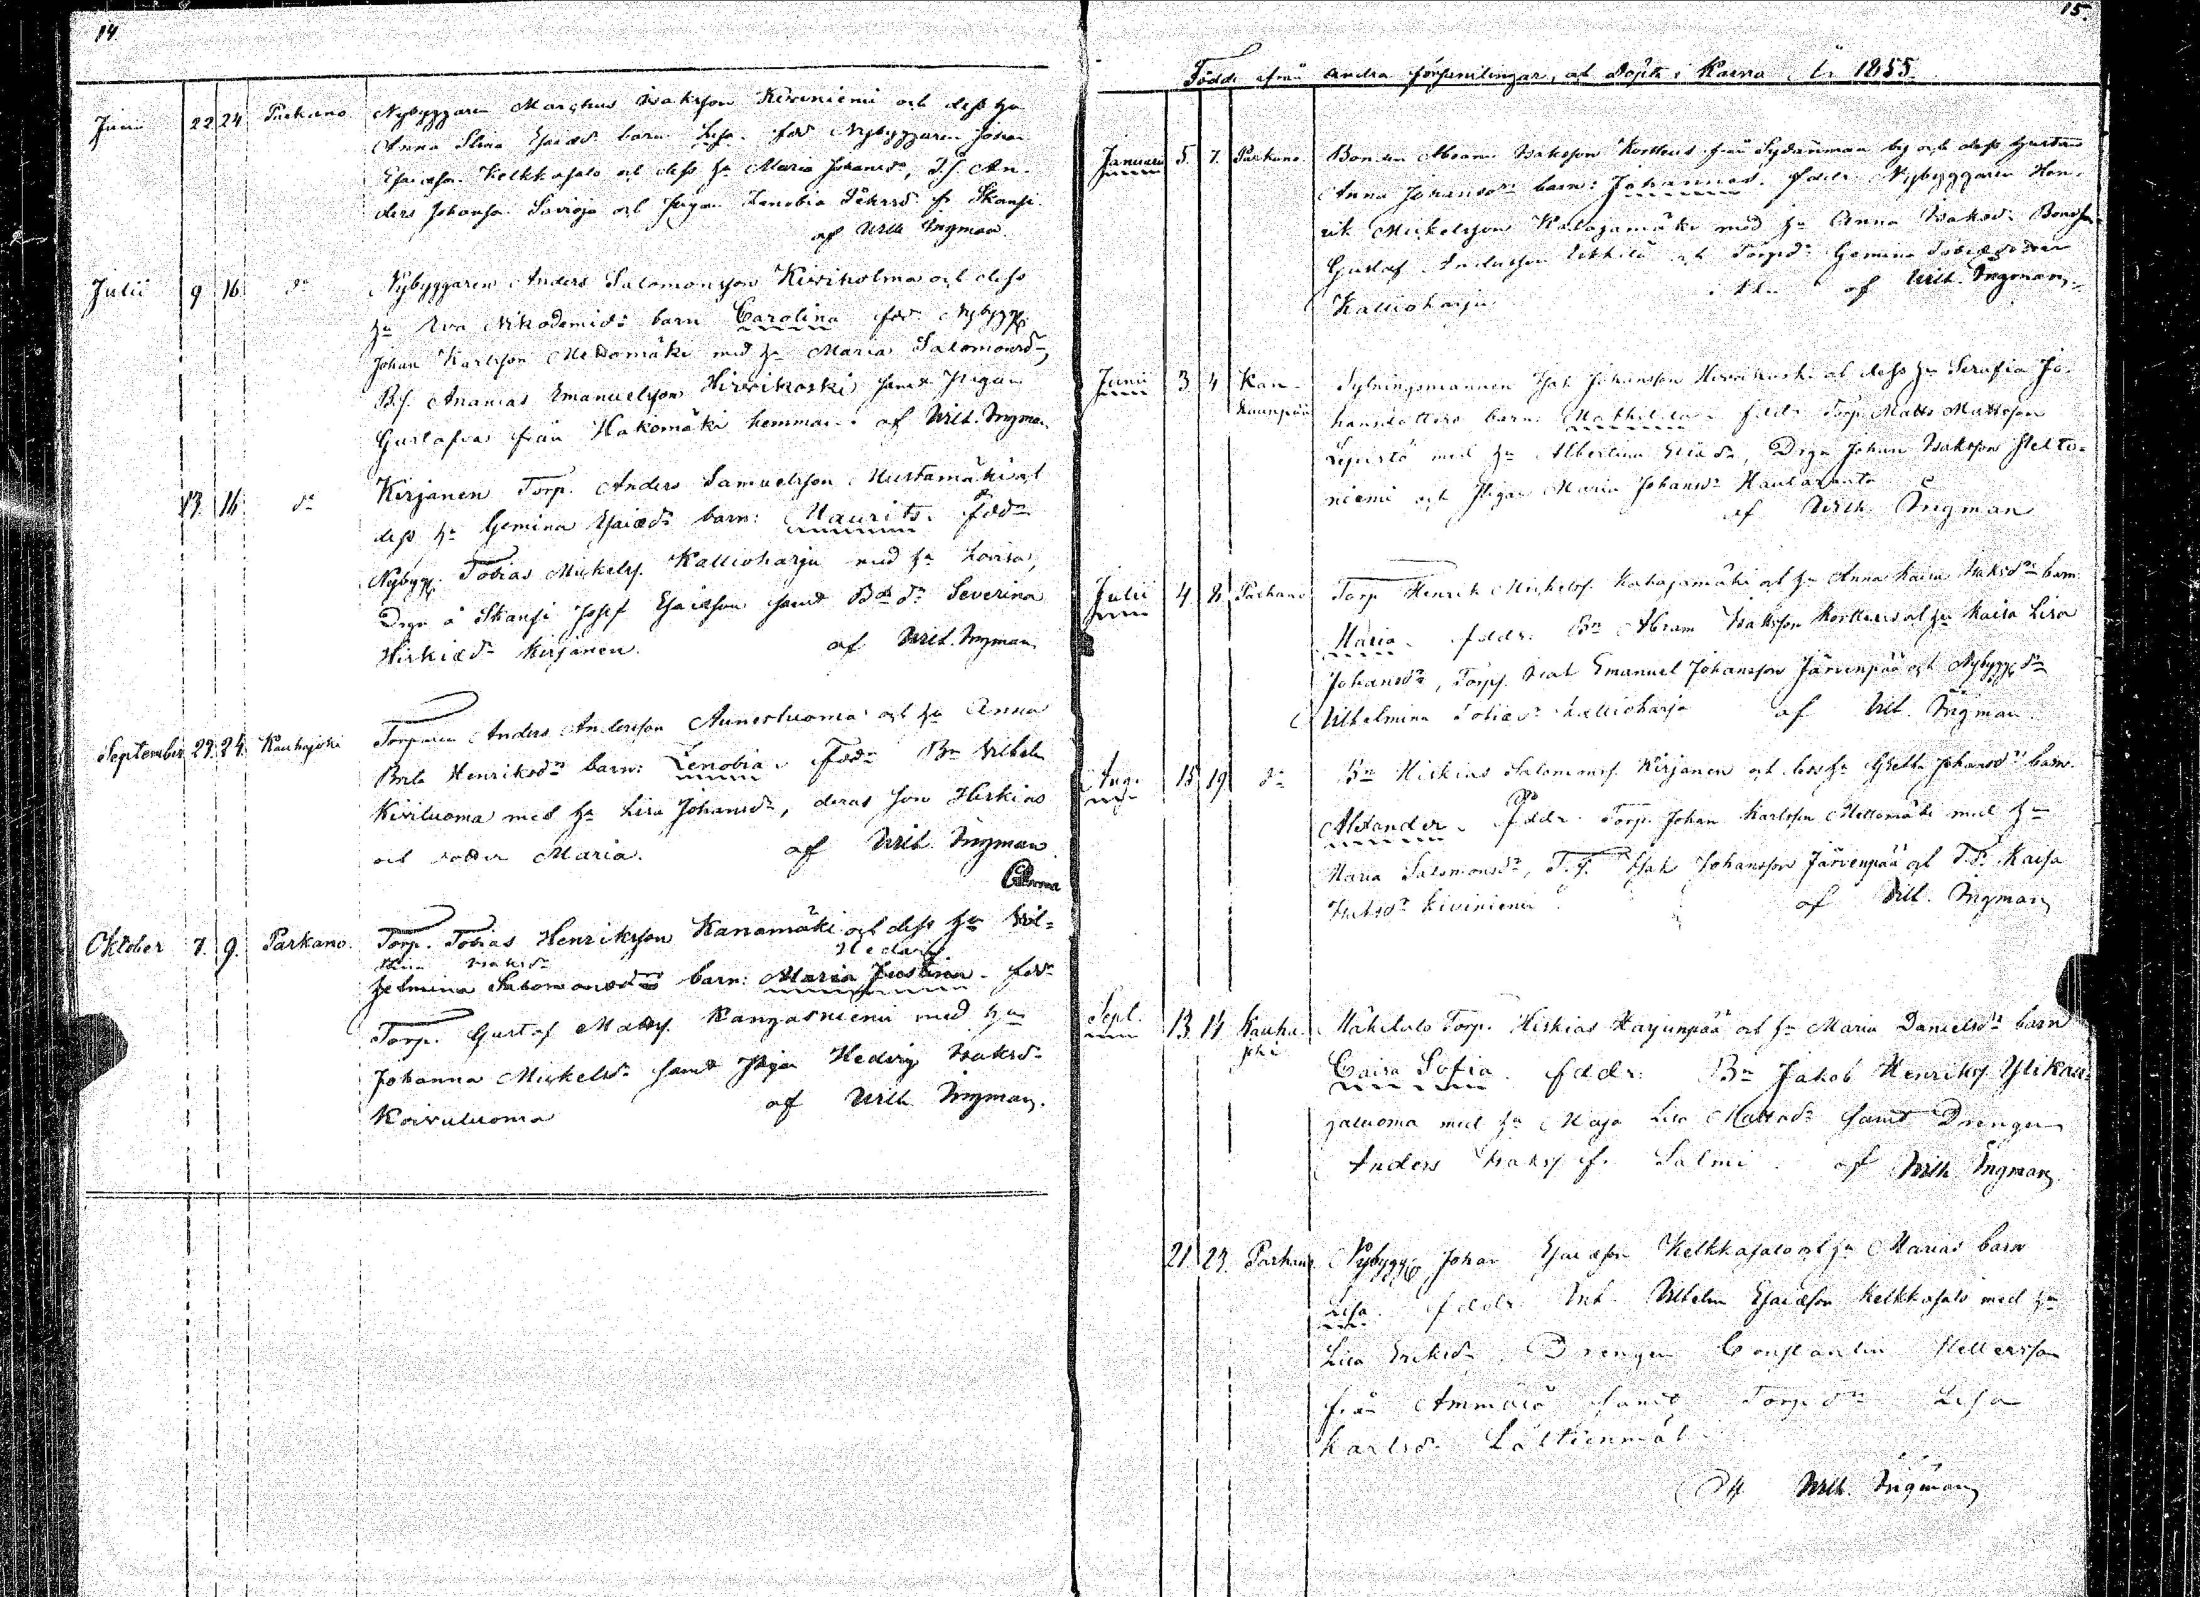 14
Junii 22 24 Parkano Nybyggaren Marchus Isaksson Kiviniemi och dess hu
Anna Stina Esaiæd. barn Lisa. fad Nybyggaren Johan
Esaiæson Kelkkasalo och dess hu Maria Johansdr, An-
ders Johanss. Savioja och pigan Zenobia fr Skansi
af Wilh Ingman
Julii 9 16 do Nybyggaren Anders Salomonsson Kiviholma och dess
hu Eva Nikodemidr barn Carolina fadr Nybygg.
Johan Karlsson Mettomäki med hu Maria Salomonsdr,
B.s. Ananias Emanuelsson Hirvikoski samt Pigan
Gustafva från Hakomäki hemman. af Wilh. Ingman
13 16 do Kirjanen Torp. Anders Samuelsson Mustamäki och
dess hu Gemina Esaiædr barn: Maurits. fadr
Nybygg. Tobias Mickelss. Kallioharju med hu Lovisa,
Drgn å Skansi Josef Esaiæson samt Bdr Severina
Hiskiædr Kirjanen. af Wilh. Ingman
September 22 24 Kauhajoki Torparen Anders Andersson Aunesluoma och hu Anna
Brita Henriksdrs barn: Zenobia. Fadr Bn Vilhelm
Kiviluoma med hu Lisa Johansdr, deras son Hiskias
och dotter Maria. af Wilh. Ingman
Oktober 7. 9. Parkano. Torp. Tobias Henriksson Kanamäki och dess hu Wil-
Stina Isaksdr Hedvig
helmina Salomonsdrs barn: Maria Justina. fadr
Torp. Gustaf Matss. Kangasniemi med hu
Johanna Mickelsdr samt Pigan Hedvig Isaksdr
Koivuluoma af Wilh Ingman.
15.
Födde från andra församlingar, och döpte i Karvia År 1855.
Januari 5. 7. Parkano Bonden Abram Isaksson Korttus från Sydänmaa by och dess hustru
Anna Johansdrs barn: Johannes. faddr. Nybyggaren Hen-
rik Mickelsson Katajamäki med hu Anna Isaksdr Bondson
Gustaf Andersson och Torpdr Gemina
Kallioharju af Wilh. Ingman
Junii 3 4 Kan- Isak Johansson Hirvikoski och dess hu Serafia Jo-
kaanpää hansdotters barn. Mathilda. faddr Torp. Matts Mattsson
Lepistö med hu Albertina Eliædr, Drgn Johan Isaksson
niemi och Pigan Maria Johansdr
af Wilh. Ingman
Julii 4 8 Parkano Torp Henrik Mickelss. Katajamäki och hu Anna Kaisa Isaksdrs barn
Maria. faddr. Bn Abram Isaksson Korttus och hu Kaisa Lisa
Johansdr, Emanuel Johansson Järvenpää och Nybygg.dr
Vilhelmina Tobiædr Kallioharju af Wilh. Ingman
Aug. 15 19 do Bn Hiskias Salomonss. Kirjanen och dess hu Gretha Johansdrs barn
Alexander. faddr. Torp. Johan Karlsson Mettomäki med hu
Maria Salomonsdr, Isak Johansson Järvenpää och T.dr Kaisa
Isaksdr Kiviniemi af Wilh. Ingman
Sept. 13 14 Kauha- Mäkitalo Torp. Hiskias Harjunpää och hu Maria Danielsdrs barn
joki Caisa Sofia. faddr: Bn Jakob Henrikss. Ylikau-
haluoma med hu Maja Lisa Mattsdr samt Drengen
Anders Isakss. fr. Salmi. af Wilh. Ingman
21 23 Parkano Nybygg Johan Esaiæson Kelkkasalo och hu Marias barn
Lisa. faddr. Vilhelm Esaiæson Kelkkasalo med hu
Lisa Eriksdr, Drengen Constantin
från Ämmälä samt Torpdr Lisa
Karlsdr
Af Wilh. Ingman